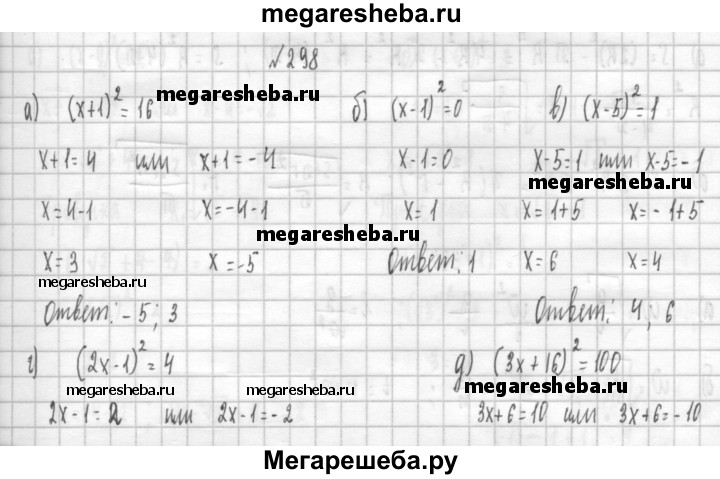 megaresheba.ru
№298
а) (x+1)² = 16 megaresheba.ru б) (x-1)² = 0 в) (x-5)² = 1
x+1=4 или x+1=-4 x-1=0 x-5=1 или x-5=-1
megaresheba.ru
x=4-1 x=-4-1 x=1 x=1+5 x=-1+5
megaresheba.ru
x=3 x=-5 Ответ: 1 x=6 x=4
megaresheba.ru
Ответ: -5; 3 Ответ: 4; 6
г) (2x-1)² = 4 д) (3x+16)² = 100
megaresheba.ru megaresheba.ru megaresheba.ru
2x-1=2 или 2x-1=-2 3x+6=10 или 3x+6=-10
Мегарешеба.ру